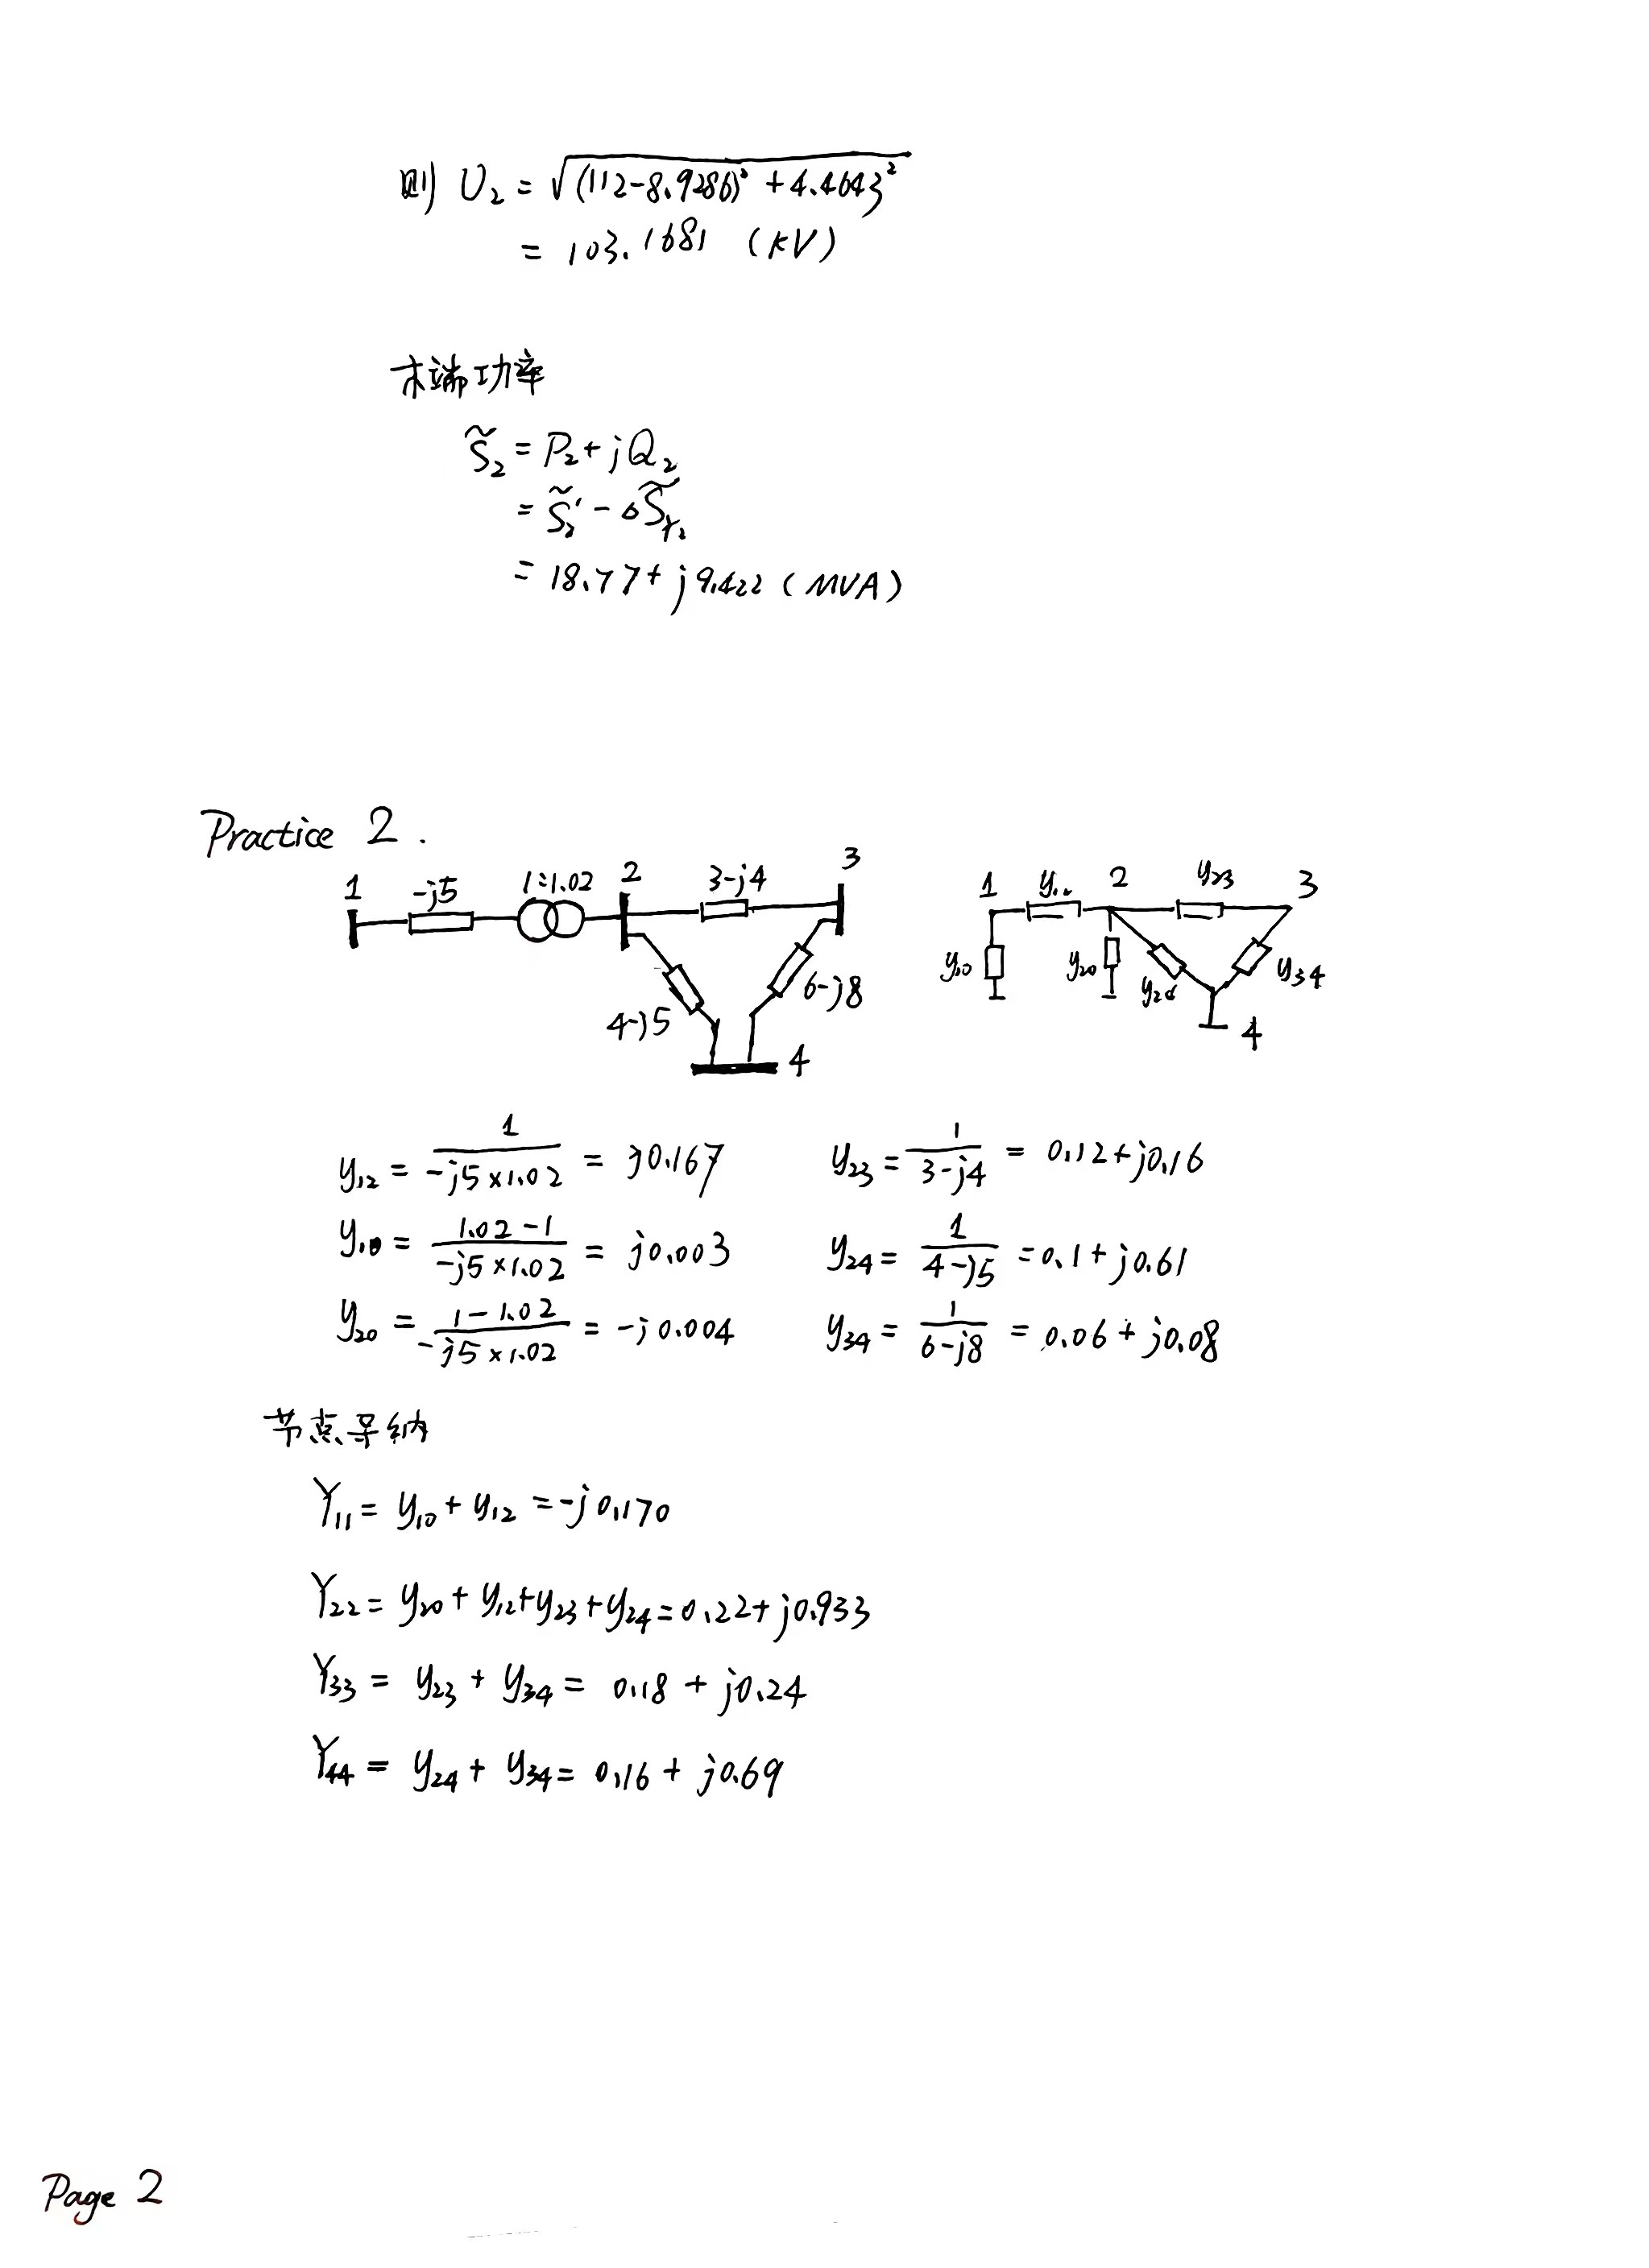 则 U₂ = √((112-8.9286)² + 4.4643²)
= 103.1681 (KV)
末端功率
S̃₂ = P₂ + jQ₂
= S̃₂' - ΔS̃Y₂
= 18.77 + j9.422 (MVA)
Practice 2.
1 -j5 1:1.02 2 3-j4 3
4-j5 6-j8
4
1 y₁₂ 2 y₂₃ 3
y₁₀ y₂₀ y₂₄ y₃₄
4
y₁₂ = 1/(-j5×1.02) = j0.167 y₂₃ = 1/(3-j4) = 0.12+j0.16
y₁₀ = (1.02-1)/(-j5×1.02) = j0.003 y₂₄ = 1/(4-j5) = 0.1+j0.61
y₂₀ = (1-1.02)/(-j5×1.02) = -j0.004 y₃₄ = 1/(6-j8) = 0.06+j0.08
节点导纳
Y₁₁ = y₁₀ + y₁₂ = -j0.170
Y₂₂ = y₂₀ + y₁₂ + y₂₃ + y₂₄ = 0.22 + j0.933
Y₃₃ = y₂₃ + y₃₄ = 0.18 + j0.24
Y₄₄ = y₂₄ + y₃₄ = 0.16 + j0.69
Page 2